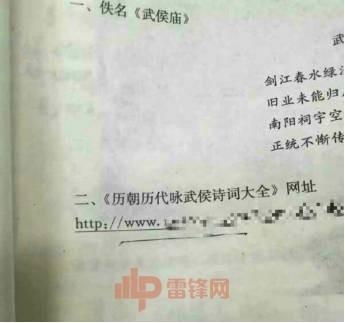 一、佚名《武侯庙》
武
剑江春水绿
旧业未能归
南阳祠宇空
正统不惭传
二、《历朝历代咏武侯诗词大全》网址
http://www.
雷锋网